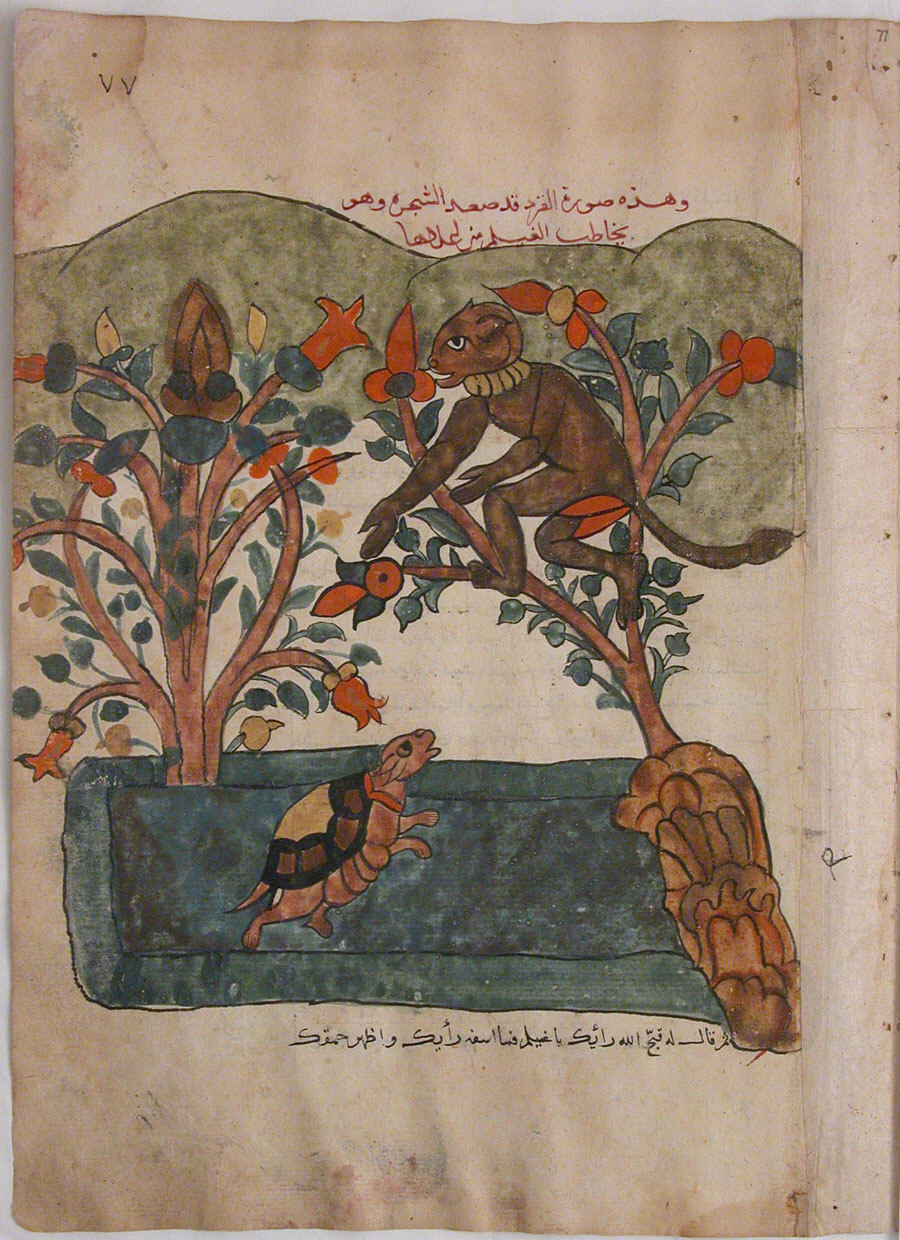 77
٧٧
وهذه صورة القرد قد صعد الشجره وهو
يخاطب الغيلم من اعلاها
ثم قال له قبّح الله رائيك يا غيلم فما اسفه رأيك واظهر حمقك